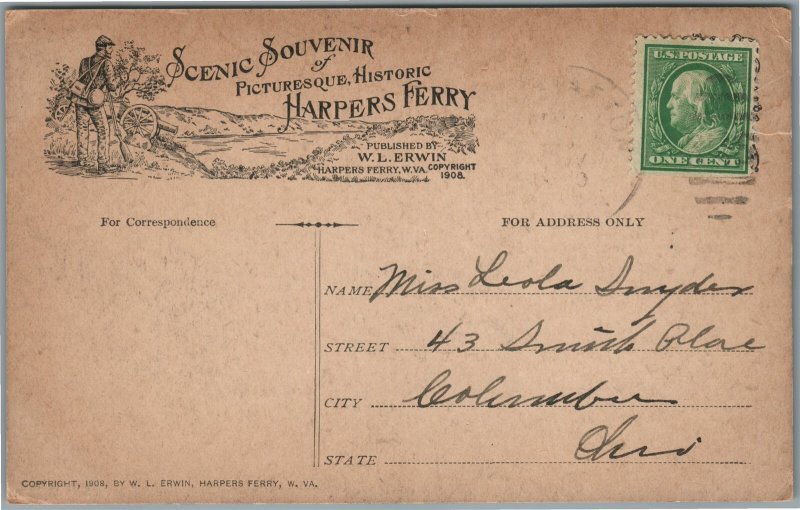 SCENIC SOUVENIR
of
PICTURESQUE, HISTORIC
HARPERS FERRY
PUBLISHED BY
W. L. ERWIN
HARPERS FERRY, W. VA. COPYRIGHT 1908.
U.S. POSTAGE
ONE CENT
For Correspondence
FOR ADDRESS ONLY
NAME Miss Leola Snyder
STREET 43 Smith Place
CITY Columbus
STATE Ohio
COPYRIGHT, 1908, BY W. L. ERWIN, HARPERS FERRY, W. VA.